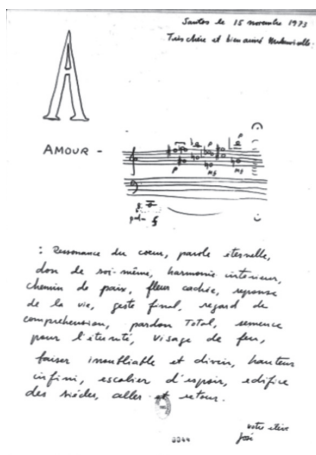 Santos le 15 novembre 1973
Très chère et bien aimée Mademoiselle
A
AMOUR -
p
mf
p
mf
: Ressonance du coeur, parole eternelle,
don de soi-même, harmonie interieur,
chemin de paix, fleur cachée, reponse
de la vie, geste final, regard de
comprehension, pardon Total, semence
pour l'eternité, visage de feu,
baiser inoubliable et divin, hauteur
infini, escalier d'espoir, edifice
des siécles, aller et retour.
votre eleve
José